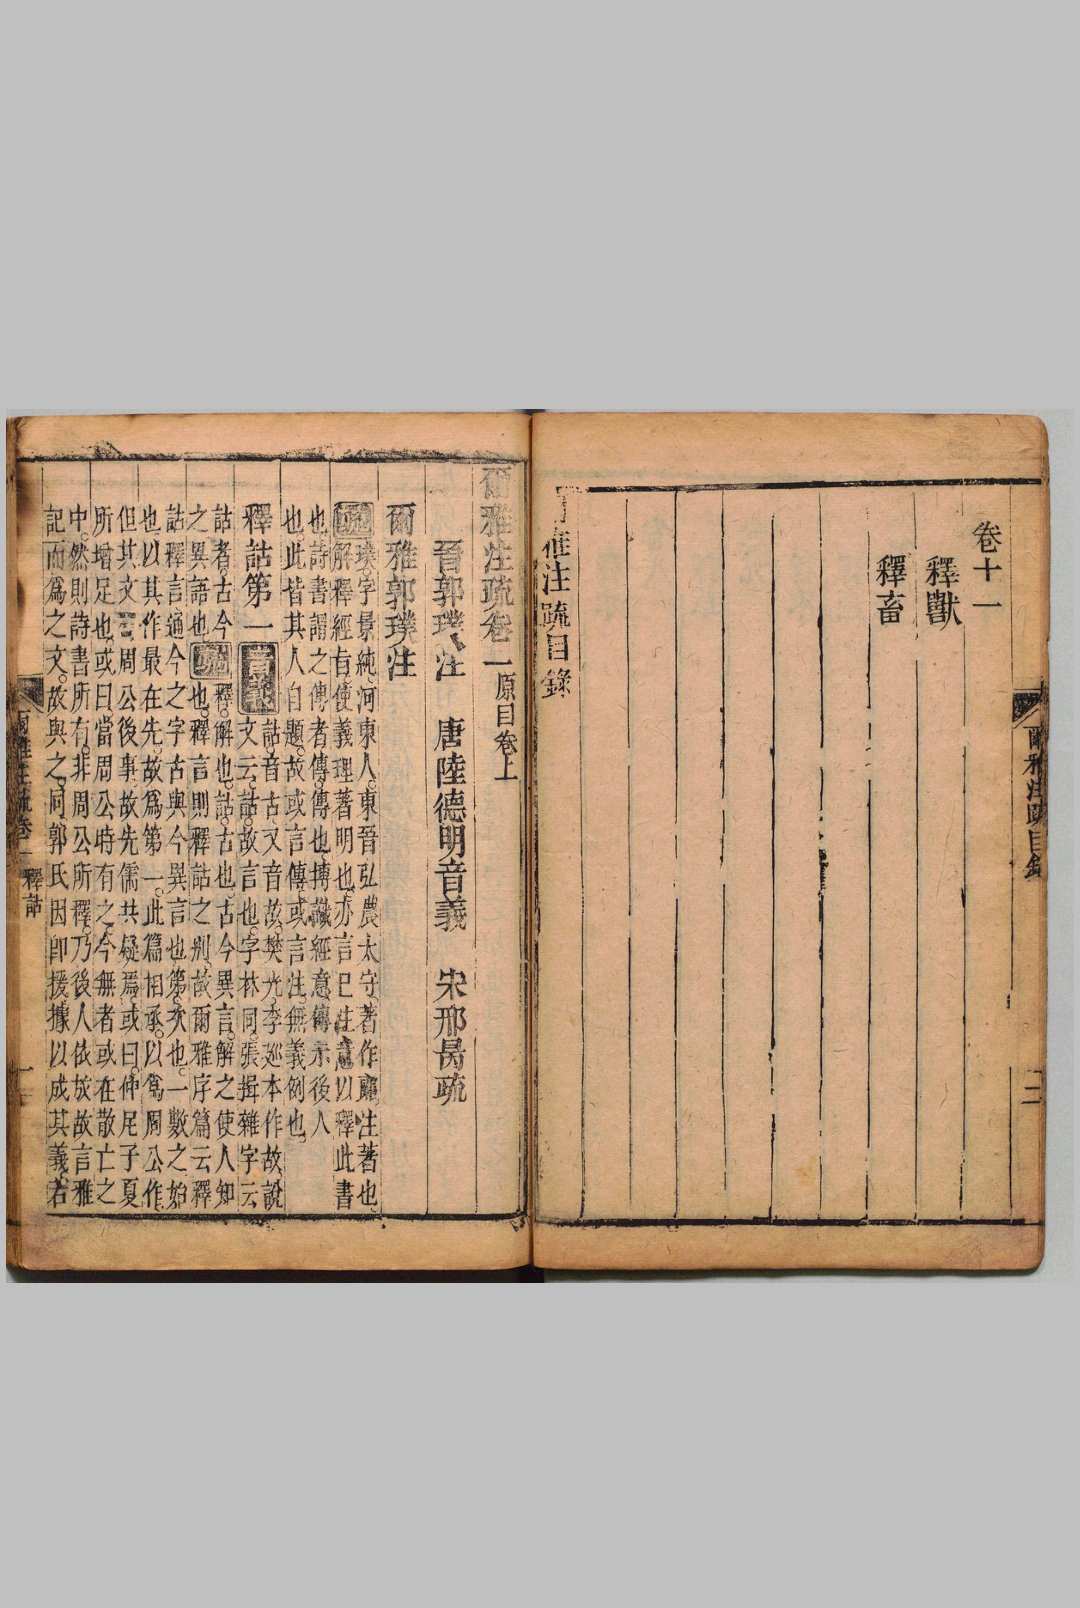 卷十一
釋獸
釋畜
爾雅注疏目錄
爾雅注疏目錄
二
爾雅注疏卷一 原目卷上
晉郭璞注 唐陸德明音義 宋邢昺疏
爾雅郭璞注
璞字景純河東人東晉弘農太守著作郎注者著也
疏解釋經旨使義理著明也亦言已注意以釋此書
也詩書謂之傳者傳傳也摶識經意傳示後人
也此皆其人自題故或言傳或言注無義例也
釋詁第一 音義 詁音古又音故樊光李巡本作故說
文云詁故言也字林同張揖雜字云
詁者古今 釋解也詁古也古今異言解之使人知
之異語也 疏 也釋言則釋詁之別故爾雅序篇云釋
詁釋言通今之字古與今異言也第次也一數之始
也以其作最在先故爲第一此篇相承以爲周公作
但其文有周公後事故先儒共疑焉或曰仲尼子夏
所增足也或曰當周公時有之今無者或在散亡之
中然則詩書所有非周公所釋乃後人依放故言雅
記而爲之文故與之同郭氏因卽援據以成其義若
爾雅注疏卷一 釋詁
一